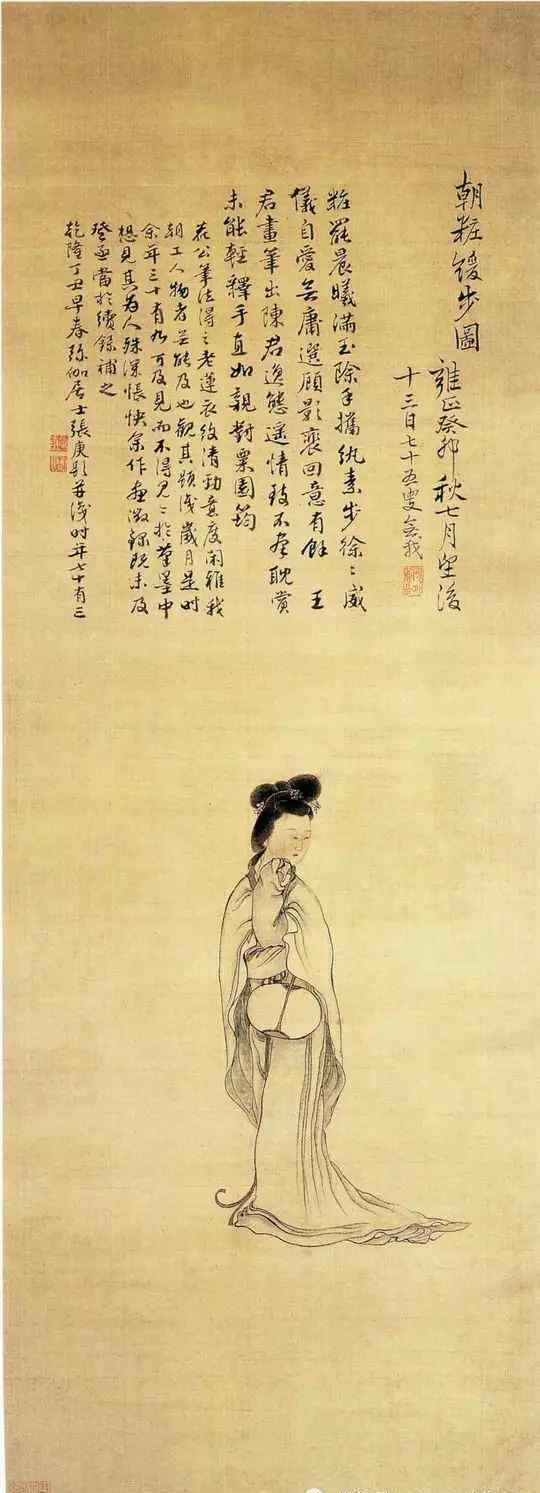 朝粧緩步圖
雍正癸卯秋七月望後
十三日七十五叟我
粧罷晨曦滿玉除手攜紈素步徐〻威
儀自愛無庸選顧影裵回意有餘 王
君畫筆出陳君逸態遥情致不羣耽賞
未能輕釋手直如親對粟園筠
公筆法得之老蓮衣紋清勁意度閒雅我
朝工人物者無能及也觀其題識歲月是时
余年三十有九可及見而不得見〻於筆墨中
想見其為人殊深悵怏余作畫徵錄既未及
登亟當於續錄補之
乾隆丁丑早春弥伽居士張庚題并識时年七十有三